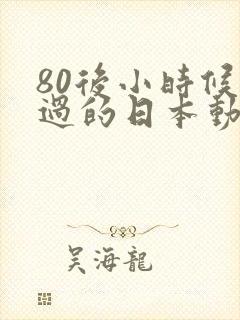 80後小時候
過的日本動
吳海龍